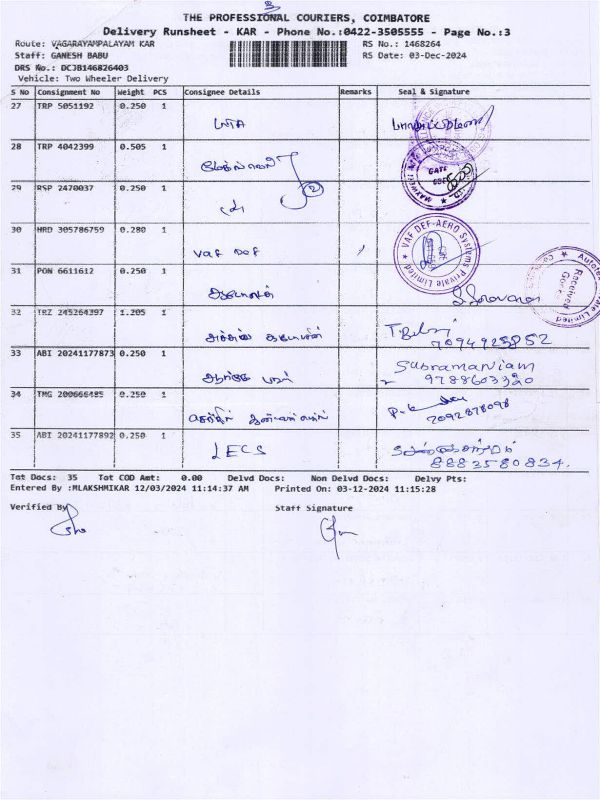 THE PROFESSIONAL COURIERS, COIMBATORE
Delivery Runsheet - KAR - Phone No.:0422-3505555 - Page No.:3
Route: VAGARAYAMPALAYAM KAR RS No.: 1468264
Staff: GANESH BABU RS Date: 03-Dec-2024
DRS No.: DCJB146826403
Vehicle: Two Wheeler Delivery
S No Consignment No Weight PCS Consignee Details Remarks Seal & Signature
27 TRP 5051192 0.250 1
28 TRP 4042399 0.505 1
GATE
29 RSP 2470037 0.250 1
2
30 HRD 305786759 0.280 1
VAF DEF
VAF DEF-AERO Systems Private Limited
31 PON 6611612 0.250 1
Received
32 TRZ 245264397 1.205 1
7094925852
33 ABI 20241177873 0.250 1
Subramaniam
9788603320
34 TMG 200666485 0.250 1
7092878098
35 ABI 20241177892 0.250 1
LECS
8883580834.
Tot Docs: 35 Tot COD Amt: 0.00 Delvd Docs: Non Delvd Docs: Delvy Pts:
Entered By :MLAKSHMIKAR 12/03/2024 11:14:37 AM Printed On: 03-12-2024 11:15:28
Verified By Staff Signature